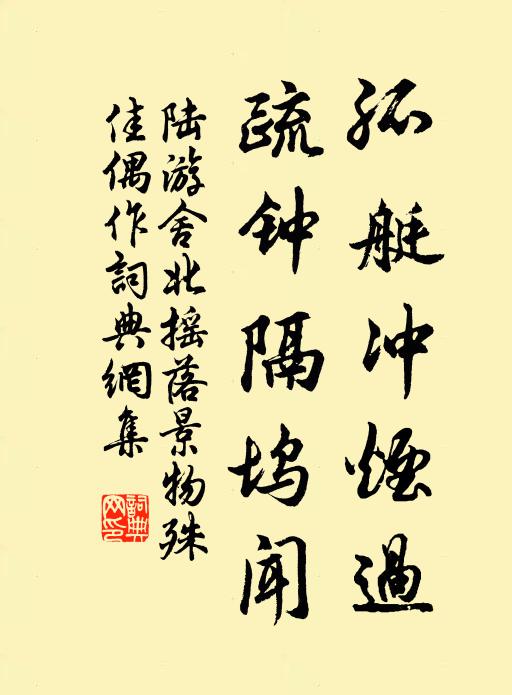 孤艇冲煙過
疏钟隔坞闻
陆游舍北摇落景物殊
佳偶作詞典網集
詞典
网印